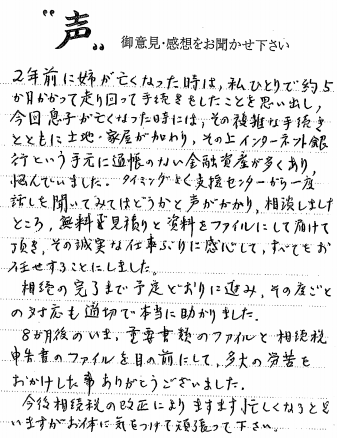 "声"
御意見・感想をお聞かせ下さい
2年前に姉が亡くなった時は、私ひとりで約5
か月かかって走り回って手続きをしたことを思い出し、
今回息子が亡くなった時には、その複雑な手続き
とともに土地・家屋が加わり、その上インターネット銀
行という手元に通帳のない金融資産が多くあり、
悩んでいました。タイミングよく支援センターから一度
話しを聞いてみてはどうかと声がかかり、相談しました
ところ、無料で見積りと資料をファイルにして届けて
頂き、その誠実な仕事ぶりに感心して、すべてをお
任せすることにしました。
相続の完了まで予定どおりに進み、その度ごと
の対応も適切で本当に助かりました。
8か月後のいま、重要書類のファイルと相続税
申告書のファイルを目の前にして、多大の労苦を
おかけした事ありがとうございました。
今後相続税の改正によりますます忙しくなると思
いますがお体に気をつけて頑張って下さい。